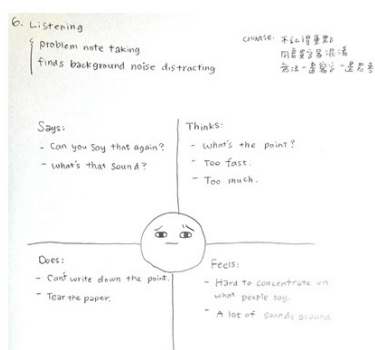 6. Listening
problem note taking
finds background noise distracting
Chinese: 不記得重點
同音異字易混淆
無法一邊寫字一邊思考
Says:
- Can you say that again?
- What's that sound?
Thinks:
- What's the point?
- Too fast.
- Too much.
Does:
- Can't write down the point.
- Tear the paper.
Feels:
- Hard to concentrate on
what people say.
- A lot of sounds around